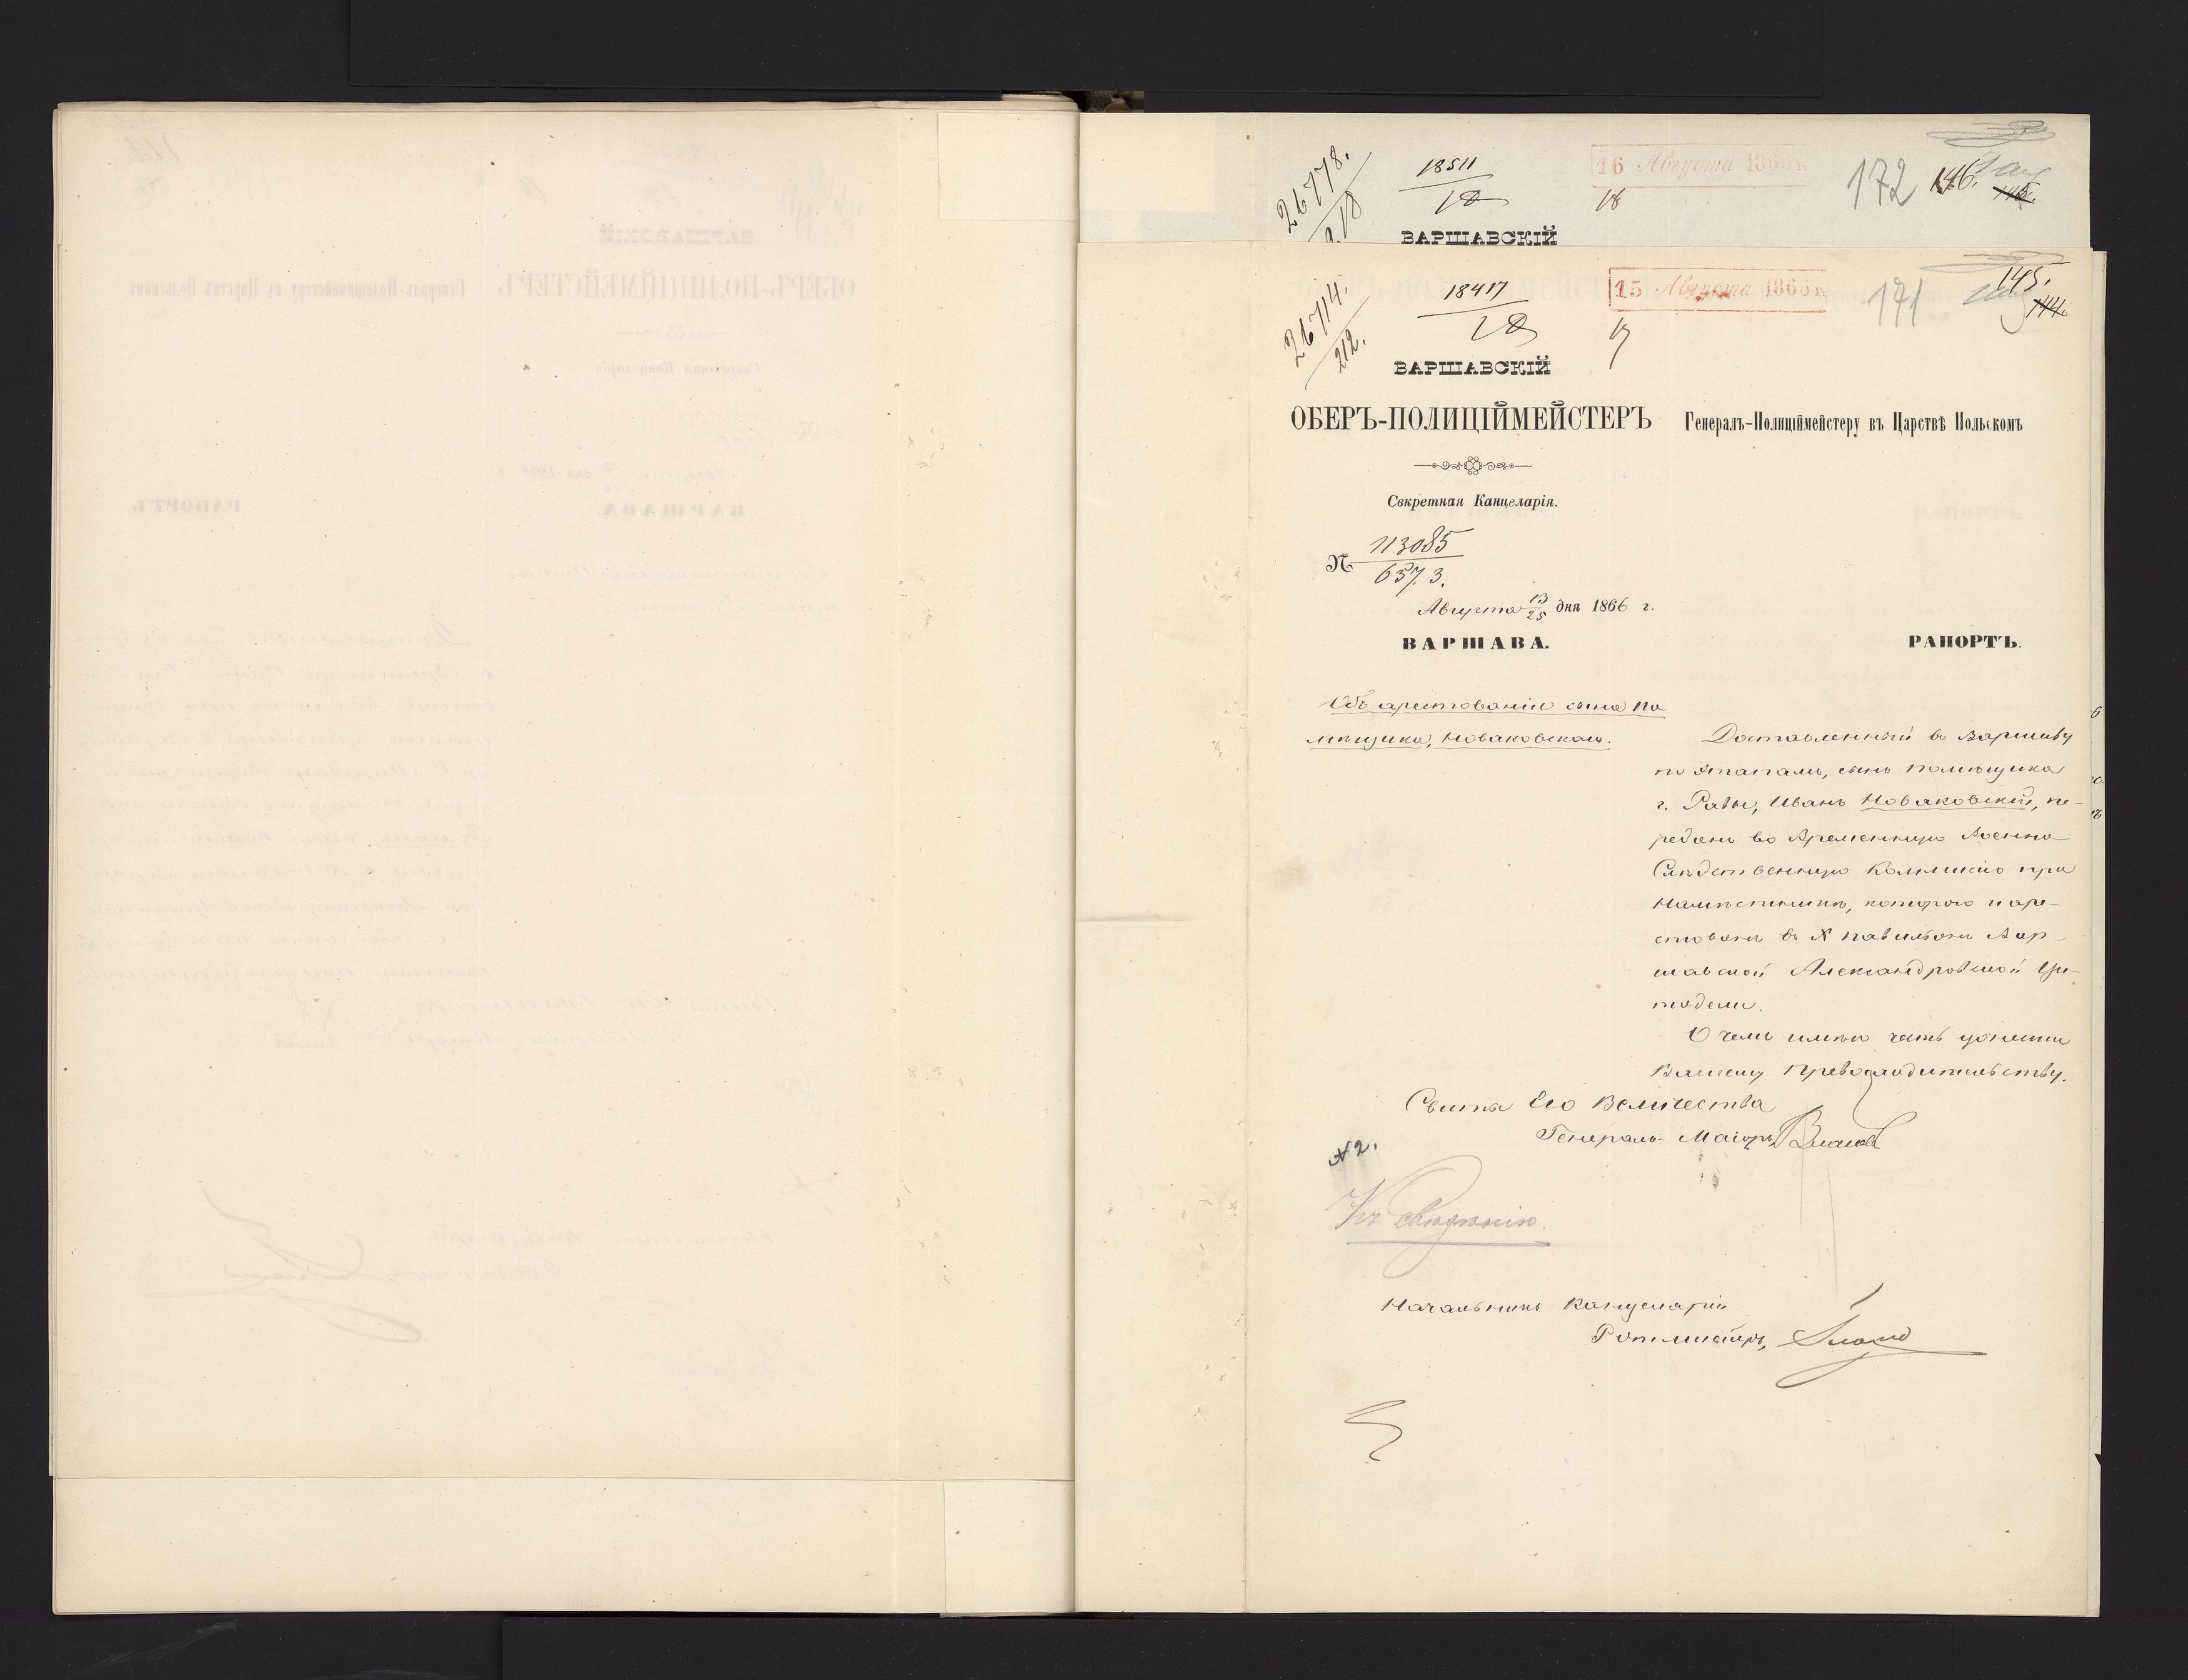 26778.
18511
18
16 Августа 1866 г.
18
172
146.
145.
ВАРШАВСКІЙ
26714.
212.
18417
18
15 Августа 1866 г.
171
145.
144.
ВАРШАВСКІЙ
ОБЕРЪ-ПОЛИЦІЙМЕЙСТЕРЪ
Генералъ-Полиціймейстеру въ Царствѣ Польскомъ
Секретная Канцелярія.
№ 113085
637. 3.
Августа 13/25 дня 1866 г.
ВАРШАВА.
РАПОРТЪ.
Объ арестованіи сына по
мѣщика, Новаковскаго.
Доставленный въ Варшаву
по этапамъ, сынъ помѣщика
г. Равы, Иванъ Новаковскій, пе-
реданъ во Временную Военно
Слѣдственную Коммисію при
Намѣстникѣ, которою и аре-
стованъ въ X павильонѣ Вар-
шавской Александровской Ци-
тадели.
О чемъ имѣю честь донести
Вашему Превосходительству.
Свиты Его Величества
Генералъ-Маіоръ
№ 2.
Къ свѣдѣнію.
Начальникъ Канцеляріи
Ротмистръ,